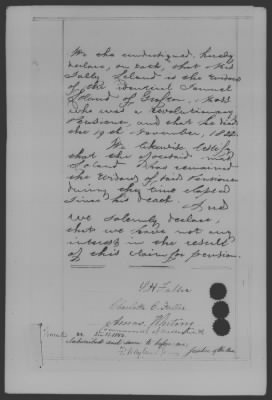 We the undersigned, hereby
declare, on oath, that Mrs
Sally Leland is the widow
of the identical Samuel
Leland of Grafton, Mass
who was a revolutionary
Pensioner, and that he died
the 19th November, 18
We likewise testify
that the aforesaid Mrs
Leland has remained
the widow of said Pensioner
during the time elapsed
since his death. And
we solemnly declare,
that we have not any
interest in the result
of this claim for pension.
Charlotte E. Fuller
Amos Whiting
Subscribed and sworn to before me
Justice of the Peace